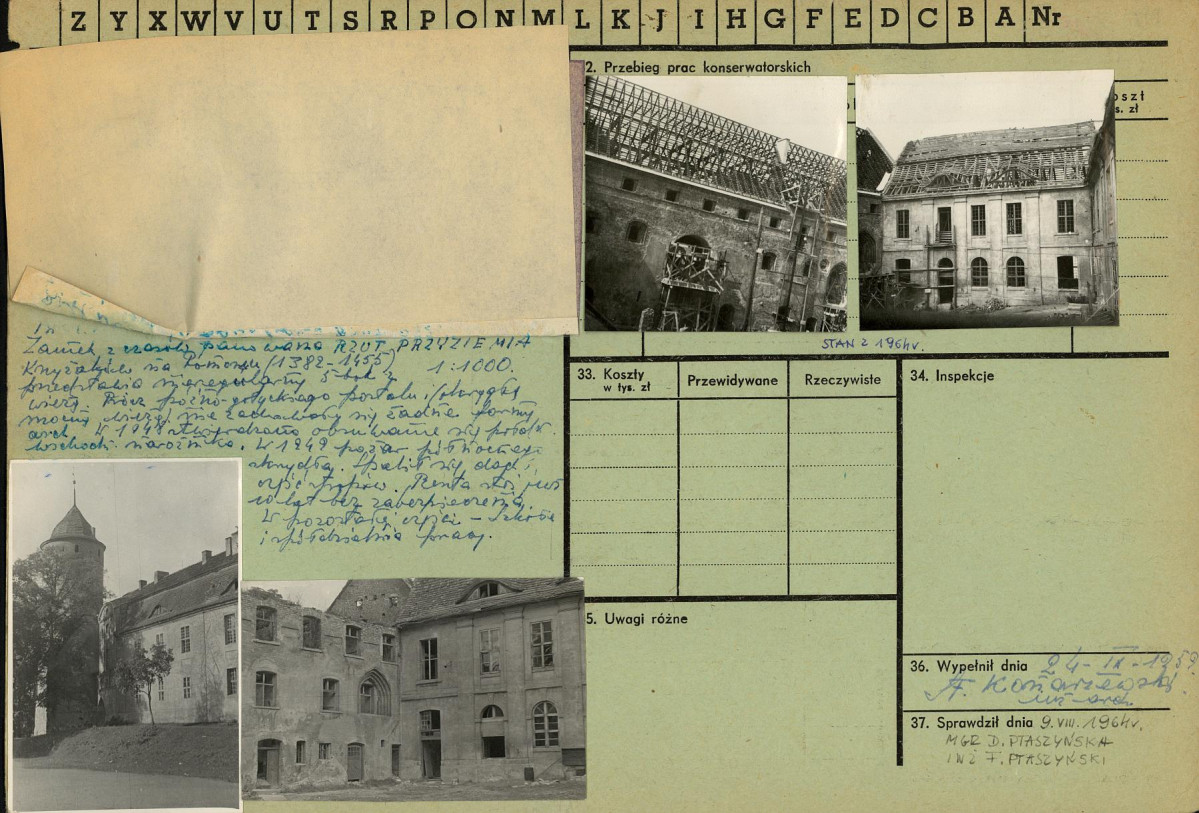 Z Y X W V U T S R P O N M L K J I H G F E D C B A Nr
2. Przebieg prac konserwatorskich
oszt
s. zł
STAN Z 1964r.
Zamek z czasów panowania RZUT PRZYZIEMIA
Krzyżaków na Pomorzu (1382-1455) 1:1000.
przedstawia nieregularny 5-bok z
wieżą. Prócz późno-gotyckiego portalu i okrągłej
wieży nie zachowały się żadne formy
arch. W 1948 stwierdzono obsuwanie się połdn.
wschodn. narożnika. W 1949 pożar północnego
skrzydła. Spalił się dach i
część stropów. Reszta stoi już
10 lat bez zabezpieczenia.
W pozostałej części - szkoła
i spółdzielnia pracy.
33. Koszty
w tys. zł
Przewidywane
Rzeczywiste
34. Inspekcje
5. Uwagi różne
36. Wypełnił dnia 24-IX-1959
A. Konarzewski
inż-arch
37. Sprawdził dnia 9.VIII.1964r.
MGR D. PTASZYŃSKA
INŻ F. PTASZYŃSKI